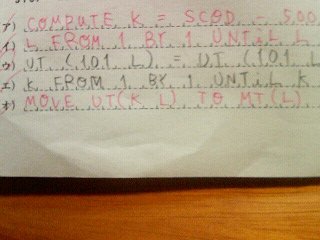 ア) COMPUTE K = SCOD - 500
イ) L FROM 1 BY 1 UNTIL L
ウ) UT (101 L) = UT (101 L
エ) K FROM 1 BY 1 UNTIL K
オ) MOVE UT(K L) TO MT(L)